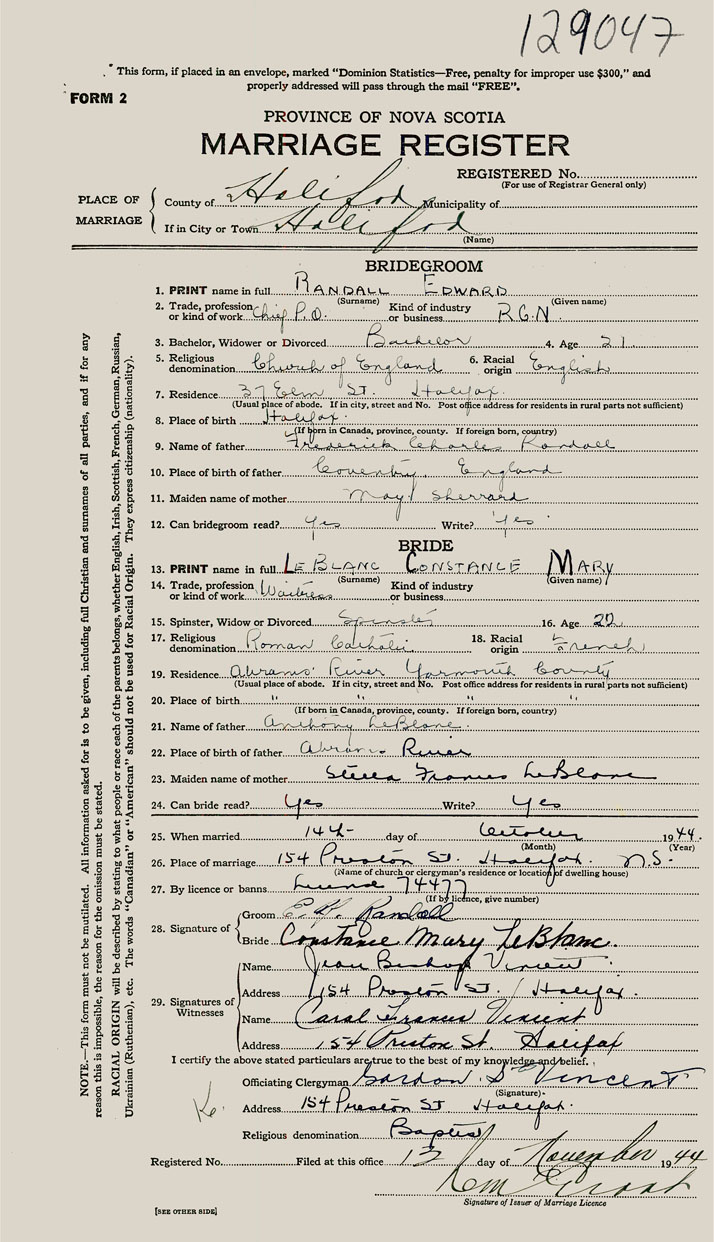 129047
* This form, if placed in an envelope, marked "Dominion Statistics—Free, penalty for improper use $300," and
properly addressed will pass through the mail "FREE".
FORM 2
PROVINCE OF NOVA SCOTIA
MARRIAGE REGISTER
REGISTERED No.
(For use of Registrar General only)
PLACE OF MARRIAGE
County of Halifax Municipality of
If in City or Town Halifax
(Name)
BRIDEGROOM
1. PRINT name in full RANDALL EDWARD
(Surname) (Given name)
2. Trade, profession or kind of work Chief P.O. Kind of industry or business R.C.N.
3. Bachelor, Widower or Divorced Bachelor 4. Age 21
5. Religious denomination Church of England 6. Racial origin English
7. Residence 37 Elm St. Halifax
(Usual place of abode. If in city, street and No. Post office address for residents in rural parts not sufficient)
8. Place of birth Halifax
(If born in Canada, province, county. If foreign born, country)
9. Name of father Frederick Charles Randall
10. Place of birth of father Coventry, England
11. Maiden name of mother May Sherrard
12. Can bridegroom read? Yes Write? Yes
BRIDE
13. PRINT name in full LE BLANC CONSTANCE MARY
(Surname) (Given name)
14. Trade, profession or kind of work Waitress Kind of industry or business
15. Spinster, Widow or Divorced Spinster 16. Age 22
17. Religious denomination Roman Catholic 18. Racial origin French
19. Residence Abrams River Yarmouth County
(Usual place of abode. If in city, street and No. Post office address for residents in rural parts not sufficient)
20. Place of birth " " " "
(If born in Canada, province, county. If foreign born, country)
21. Name of father Anthony LeBlanc
22. Place of birth of father Abrams River
23. Maiden name of mother Stella Frances LeBlanc
24. Can bride read? Yes Write? Yes
25. When married 14th day of October 1944.
(Month) (Year)
26. Place of marriage 154 Preston St. Halifax. N.S.
(Name of church or clergyman's residence or location of dwelling house)
27. By licence or banns License 74477
(If by licence, give number)
28. Signature of
Groom Randall
Bride Constance Mary LeBlanc.
29. Signatures of Witnesses
Name Jean Bishop Vincent
Address 154 Preston St. Halifax.
Name Carol Frances Vincent
Address 154 Preston St. Halifax
I certify the above stated particulars are true to the best of my knowledge and belief.
Officiating Clergyman Gordon S Vincent
(Signature)
Address 154 Preston St Halifax.
Religious denomination Baptist
Registered No. Filed at this office 13 day of November 1944
Signature of Issuer of Marriage Licence
[SEE OTHER SIDE]
NOTE.—This form must not be mutilated. All information asked for is to be given, including full Christian and surnames of all parties, and if for any
reason this is impossible, the reason for the omission must be stated.
RACIAL ORIGIN will be described by stating to what people or race each of the parents belongs, whether English, Irish, Scottish, French, German, Russian,
Ukrainian (Ruthenian), etc. The words "Canadian" or "American" should not be used for Racial Origin. They express citizenship (nationality).